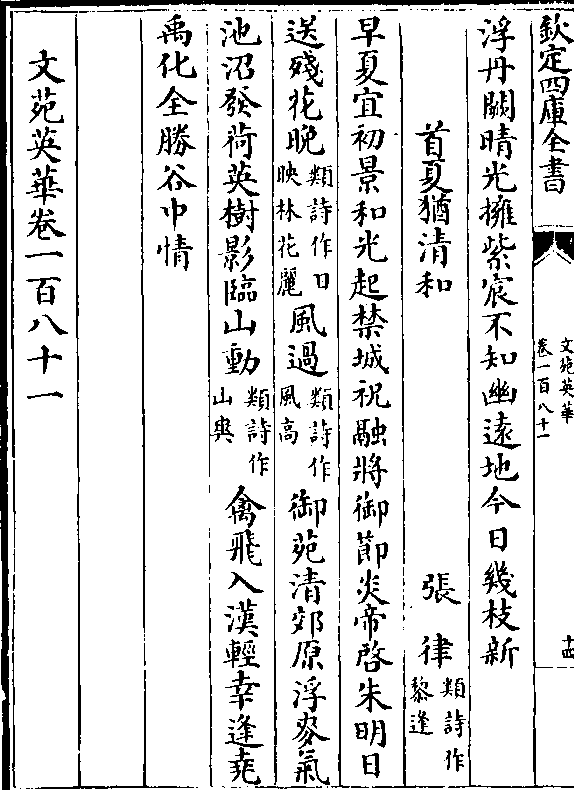 欽定四庫全書
文苑英華
卷一百八十一
十四
浮丹闕晴光擁紫宸不知幽遠地今日幾枝新
首夏猶清和 張律類詩作黎逢
早夏宜初景和光起禁城祝融將御節炎帝啓朱明日
送殘花晚類詩作日映林花麗風過類詩作風高御苑清郊原浮麥氣
池沼發荷英樹影臨山動類詩作山與禽飛入漢輕幸逢堯
禹化全勝谷中情
文苑英華卷一百八十一